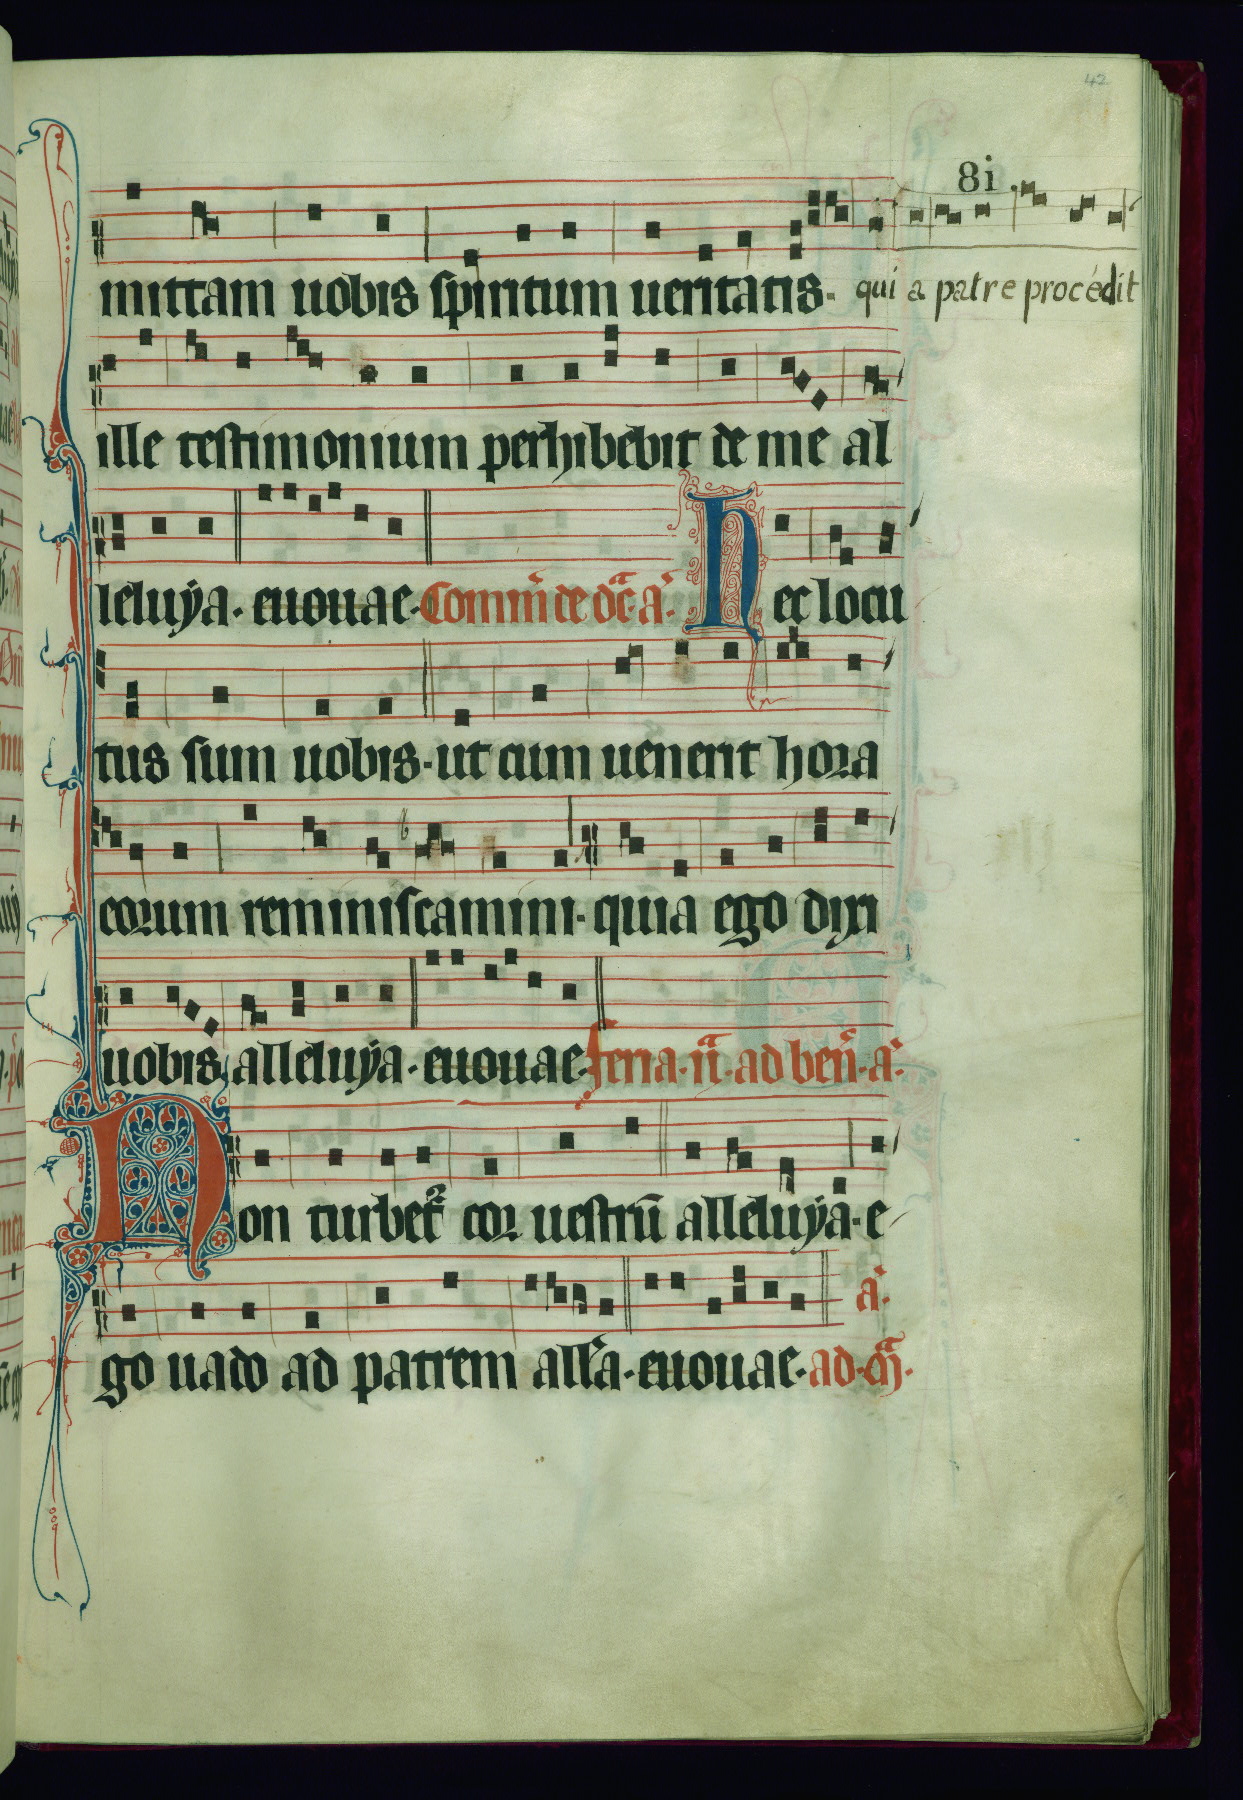 42
8i
mittam uobis spiritum ueritatis. qui a patre procédit
ille testimonium perhibebit de me al
leluẏa. euouae. Comm̄ de dc̄. a. hec locu
tus sum uobis. ut cum uenerit hora
eorum reminiscamini. quia ego dixi
uobis, alleluẏa. euouae. feria. ii. ad ben̄. a.
Non turbet᷑ cor uestrū alleluẏa. e
a.
go uado ad patrem all'a. euouae. ad. m̄.